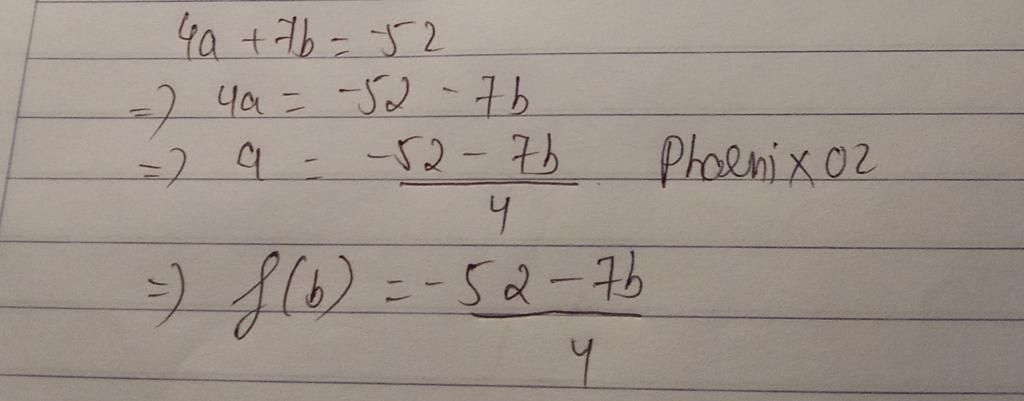 4a + 7b = -52
=) 4a = -52 - 7b
=) a = -52 - 7b / 4 Phoenix02
=) f(b) = -52 - 7b / 4